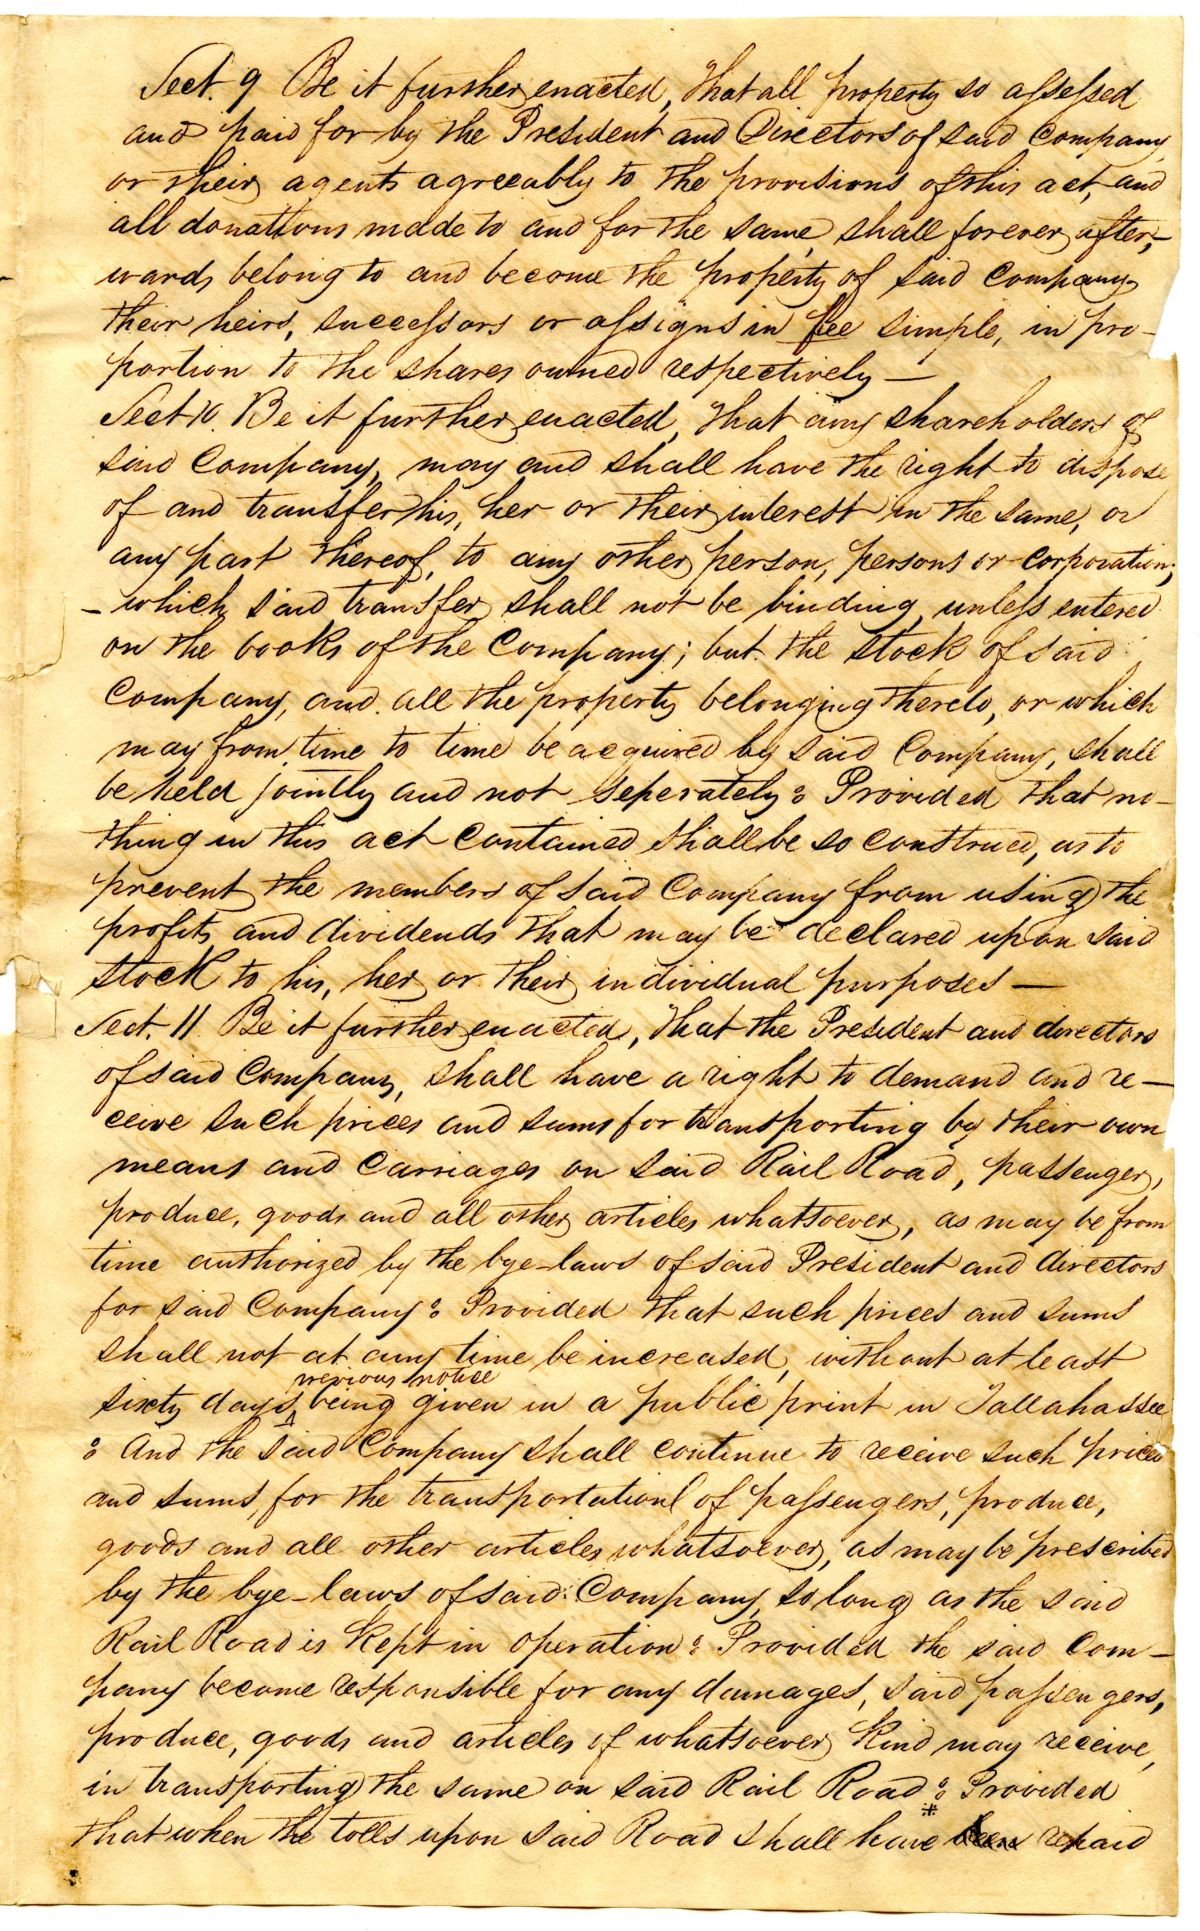 Sect. 9 Be it further enacted, That all property so assessed
and paid for by the President and Directors of said Company,
or their agents agreeably to the provisions of this act, and
all donations made to and for the same, shall forever after-
wards belong to and become the property of said Company
their heirs, successors or assigns in fee simple, in pro-
portion to the shares owned respectively —
Sect 10. Be it further enacted, That any shareholders of
said Company, may and shall have the right to dispose
of and transfer his, her or their interest in the same, or
any part thereof, to any other person, persons or corporation;
- which said transfer shall not be binding, unless entered
on the books of the Company; but the stock of said
Company, and all the property belonging thereto, or which
may from time to time be acquired by said Company, shall
be held jointly and not seperately: Provided That no-
thing in this act contained shall be so construed, as to
prevent the members of said Company from using the
profits and dividends that may be declared upon said
stock to his, her or their individual purposes —
Sect. 11 Be it further enacted, That the President and directors
of said Company, shall have a right to demand and re-
ceive such prices and sums for transporting by their own
means and Carriages on said Rail Road, passengers,
produce, goods and all other articles whatsoever, as may be from
time authorized by the bye-laws of said President and directors
for said Company: Provided That such prices and sums
shall not at any time be increased, without at least
previous notice
sixty days being given in a public print in Tallahassee
: And the said Company shall continue to receive such prices
and sums, for the transportation of passengers, produce,
goods and all other articles whatsoever, as may be prescribed
by the bye-laws of said Company, so long as the said
Rail Road is kept in operation: Provided the said Com-
pany become responsible for any damages, said passengers,
produce, goods and articles of whatsoever kind may receive,
in transporting the same on said Rail Road: Provided
*
that when the tolls upon said Road shall have been repaid